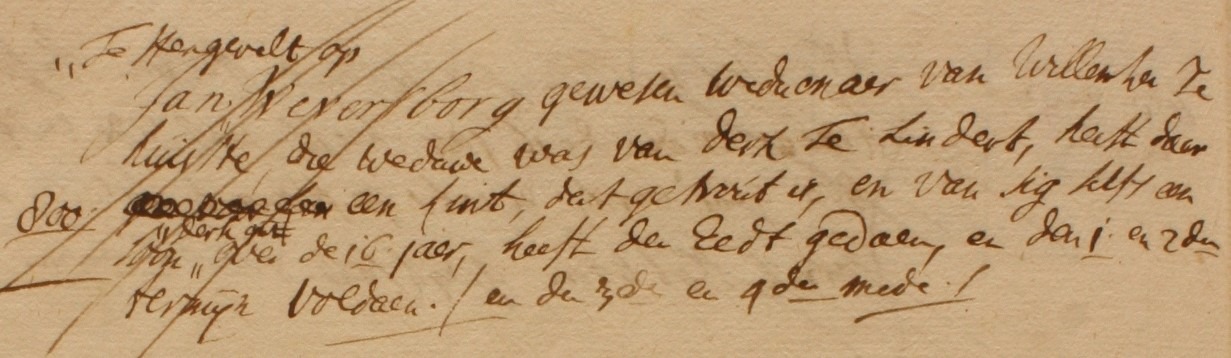 „Te Hengevelt op
Jan Weversborg gewesen weduenaer van Willemken Te
huiske, die weduwe was van Derk Te Lindert, heeft daer
een kint, dat getrout is, en van sig selfs een
800. soon „Derk gnt over de 16 jaer, heeft den Eedt gedaen, en den 1. en 2den
termijn voldaen. / en den 3de en 4den mede. /